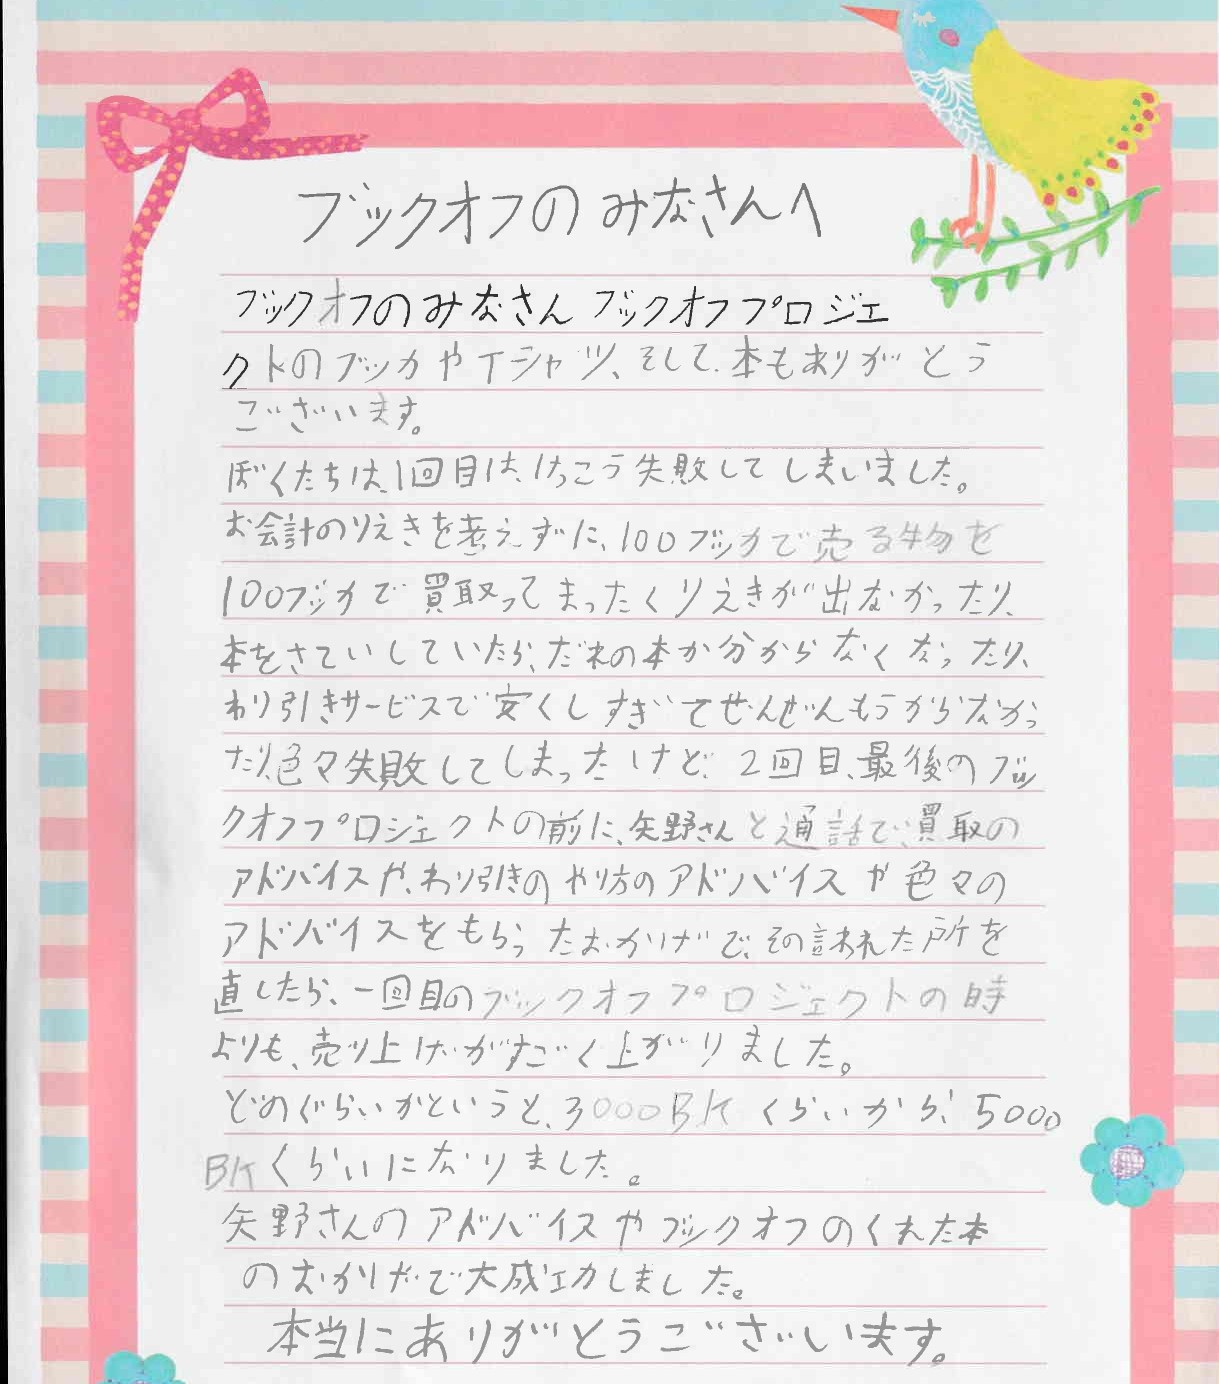 ブックオフのみなさんへ
ブックオフのみなさんブックオフプロジェ
クトのブッカやTシャツ、そして、本もありがとう
ございます。
ぼくたちは、1回目は、けっこう失敗してしまいました。
お会計のりえきを考えずに、100ブッカで売る物を
100ブッカで買取ってまったくりえきが出なかったり、
本をさていしていたら、だれの本か分からなくなったり、
わり引きサービスで安くしすぎてぜんぜんもうからなかっ
たり、色々失敗してしまったけど、2回目、最後のブッ
クオフプロジェクトの前に、矢野さんと通話で、買取の
アドバイスや、わり引きのやり方のアドバイスや色々の
アドバイスをもらったおかげで、その言われた所を
直したら、一回目のブックオフプロジェクトの時
よりも、売り上げがすごく上がりました。
どのぐらいかというと、3000BKくらいから、5000
BKくらいになりました。
矢野さんのアドバイスやブックオフのくれた本
のおかげで大成功しました。
本当にありがとうございます。